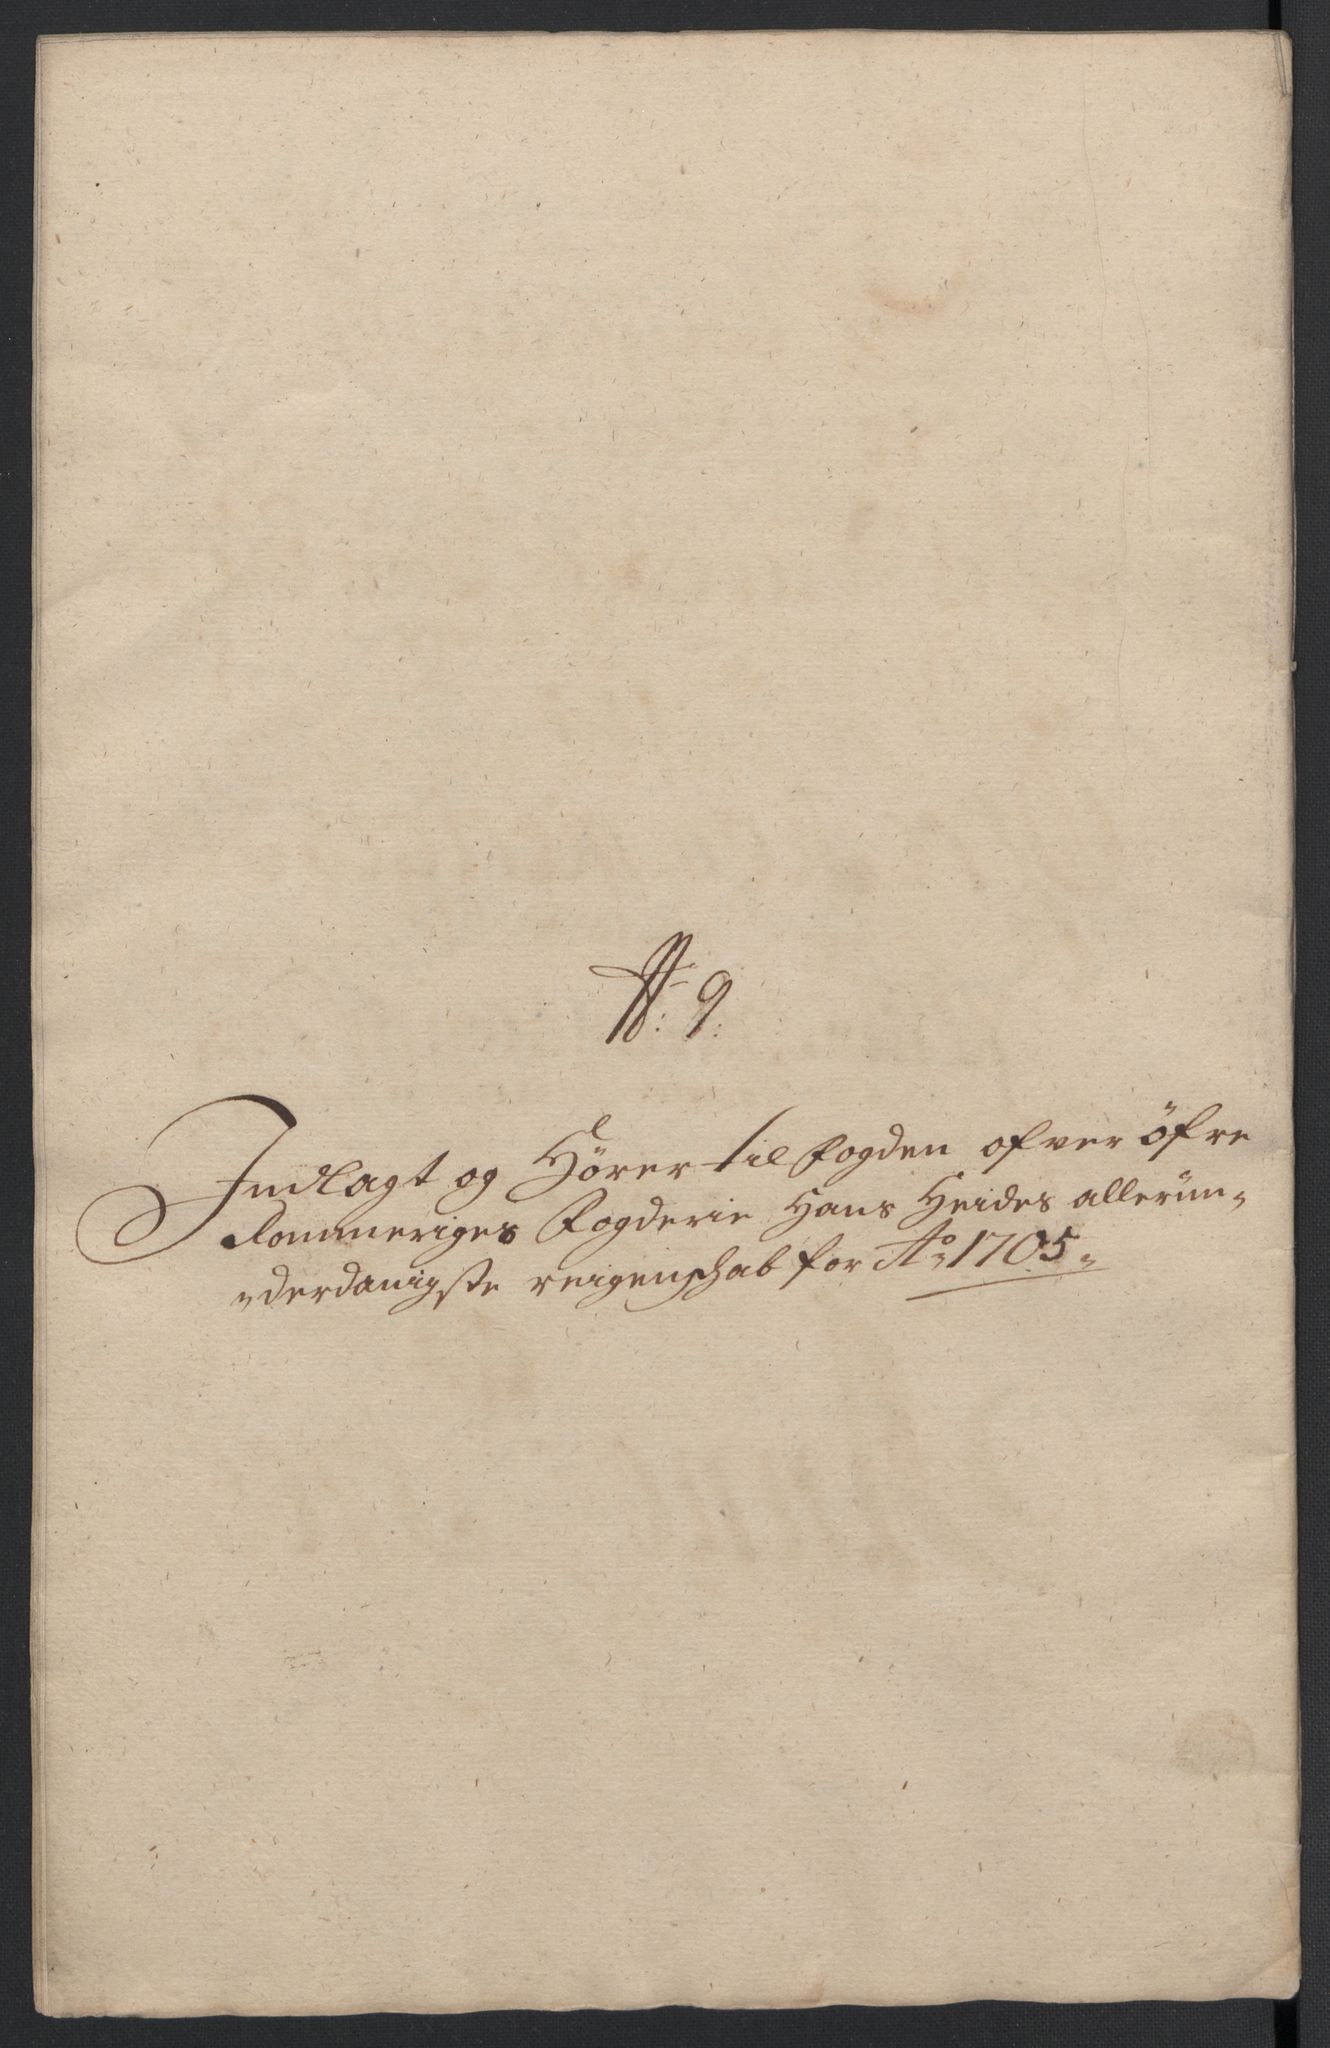 N: 9:
Indlagt og Hører til Fogden ofver Öfre
Rommeriges Fogderie Hans Heides allerün„
„derdanigste reigenschab for Ao: 1705„